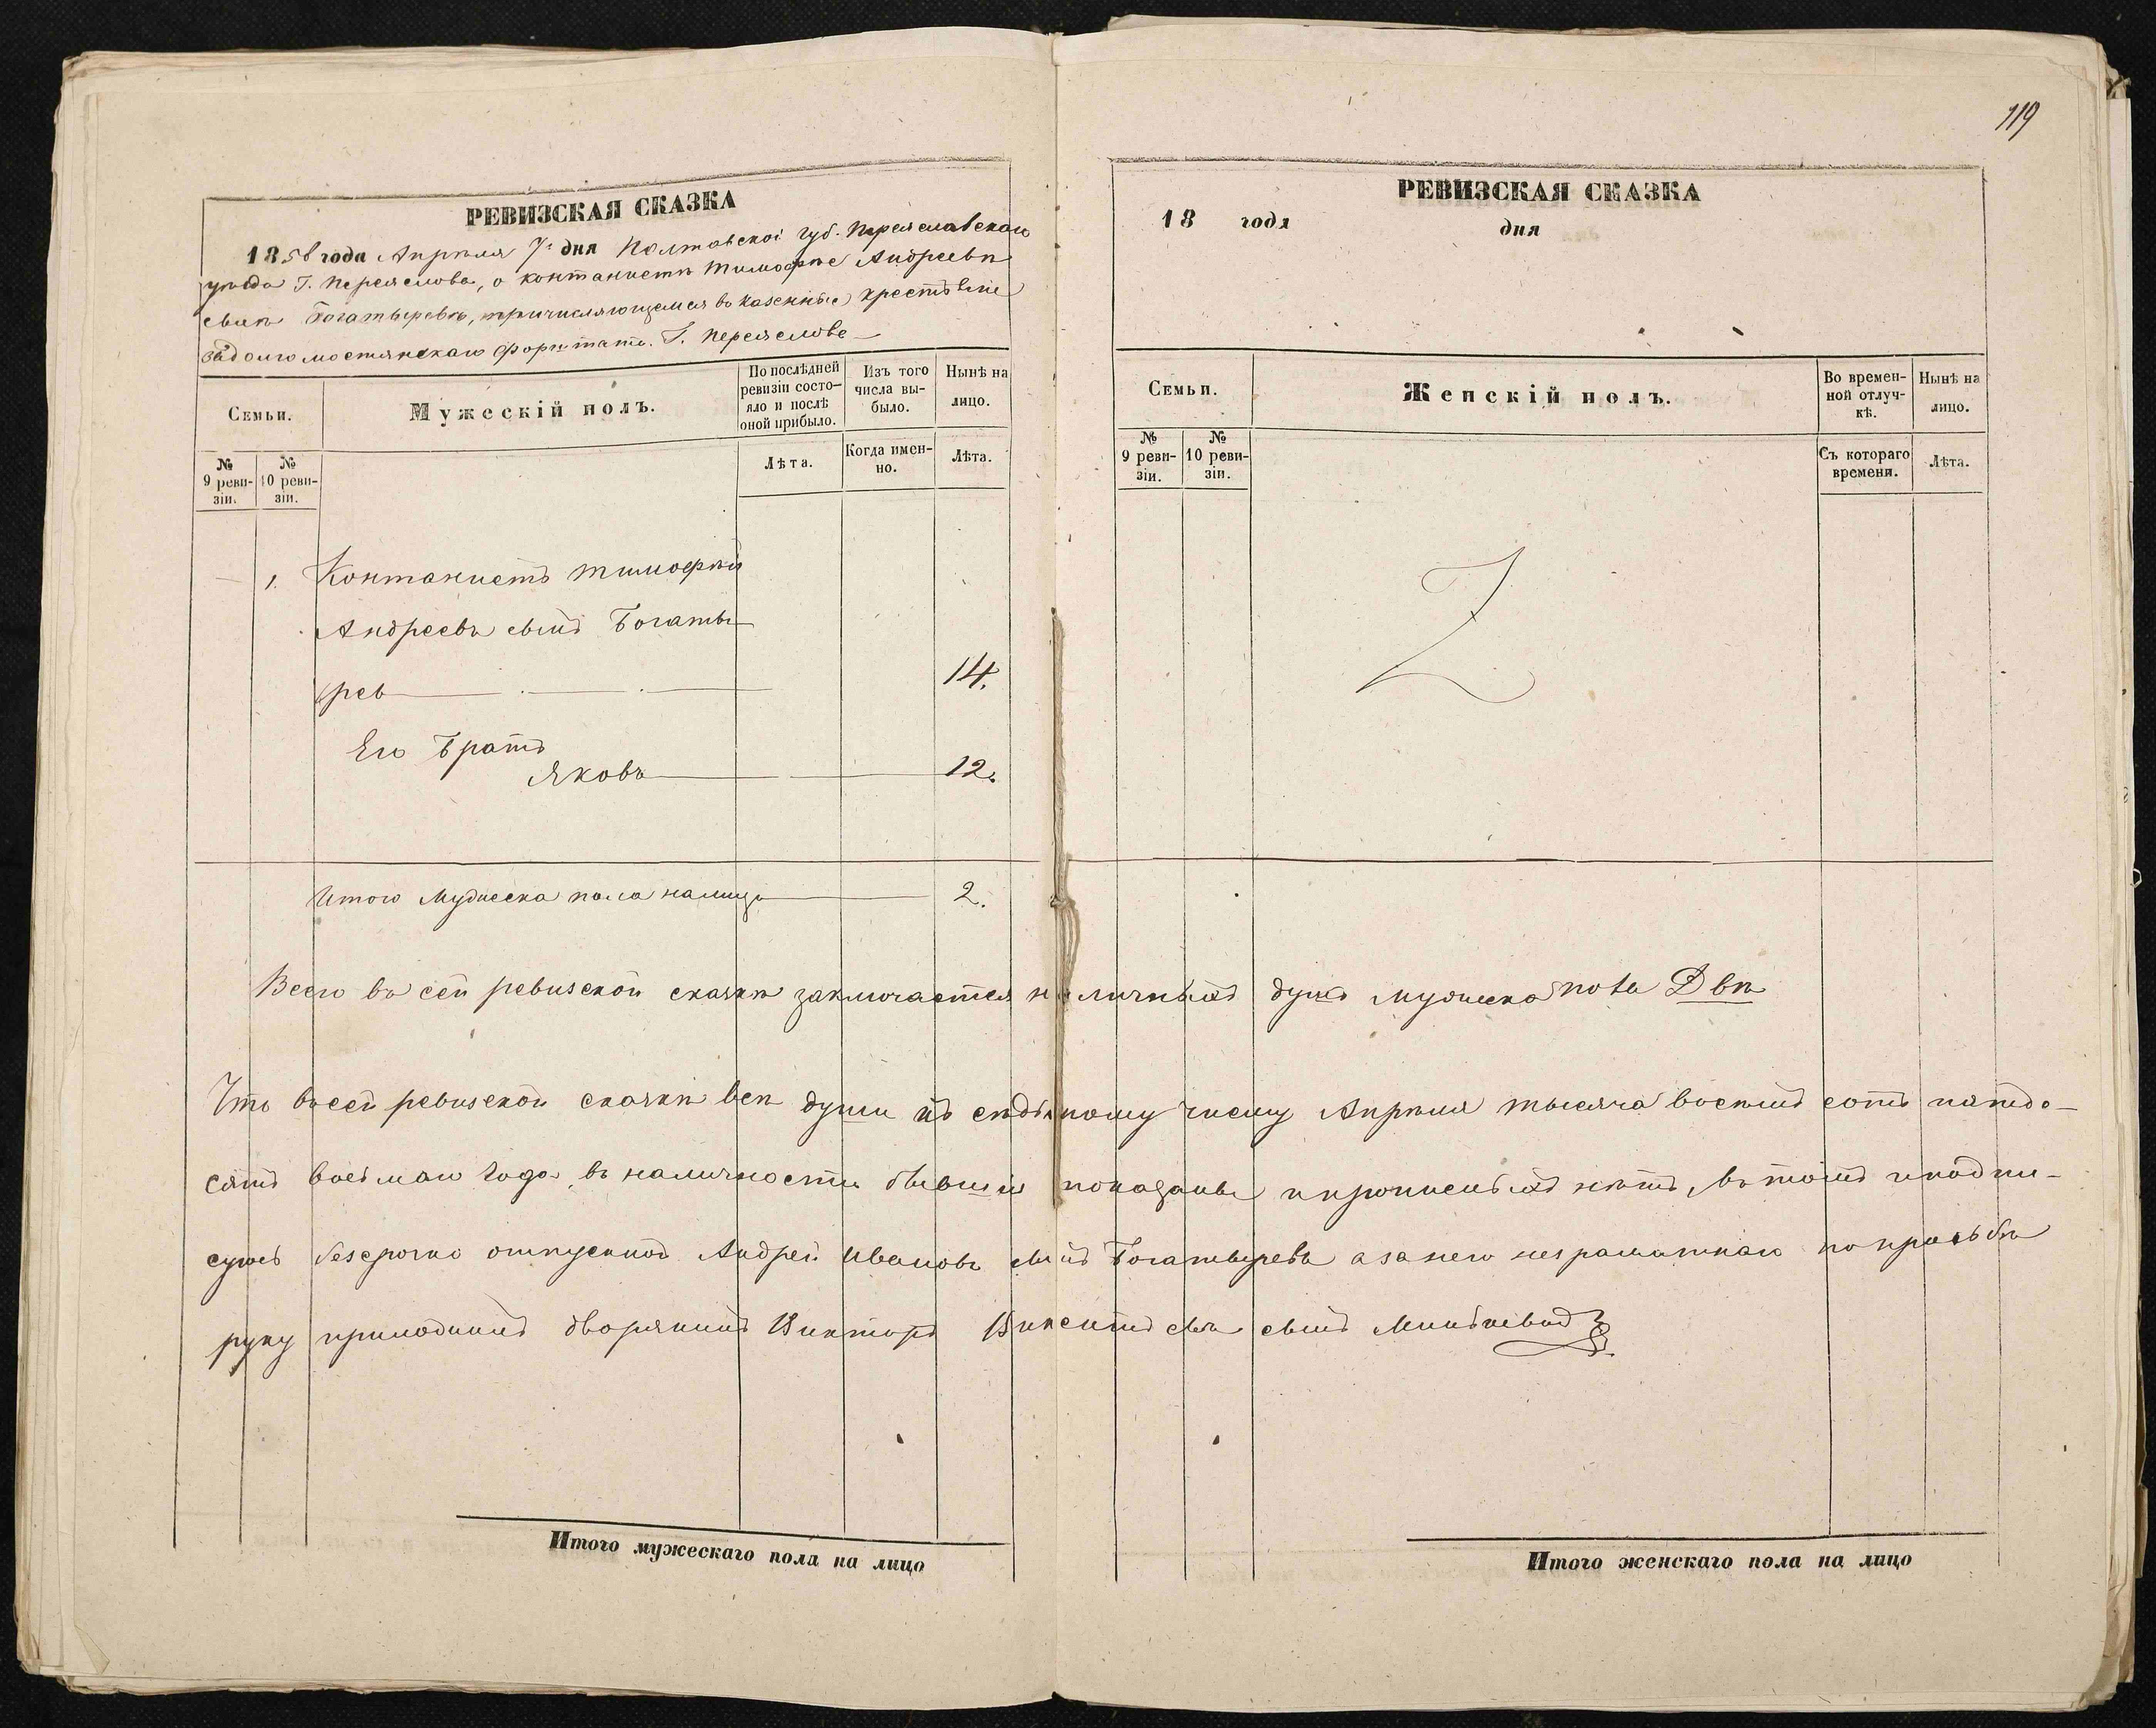 119
РЕВИЗСКАЯ СКАЗКА
1858 года Апрѣля 7. дня Полтавской губ. Переяславскаго
уѣзда Г. Переяслова, о контанистѣ Тимофѣе Андреевѣ
сынѣ Богатыревѣ, причисляющемся въ казенные крестьяне
форштата. Г. Переяслове
Семьи.
Мужескій полъ.
По послѣдней ревизіи состояло и послѣ оной прибыло.
Изъ того числа выбыло.
Нынѣ на лицо.
№ 9 ревизіи.
№ 10 ревизіи.
Лѣта.
Когда именно.
Лѣта.
1. Контанистъ Тимофѣй
Андреевъ сынъ Богаты-
рев 14.
Его Братъ
Яковъ 12.
Итого Мужеска пола налицо 2.
РЕВИЗСКАЯ СКАЗКА
18 года дня
Семьи.
Женскій полъ.
Во временной отлучкѣ.
Нынѣ на лицо.
№ 9 ревизіи.
№ 10 ревизіи.
Съ котораго времени.
Лѣта.
Всего въ сей ревизской сказкѣ заключается наличныхъ душъ мужеска пола Двѣ
Что въ сей ревизской сказкѣ всѣ души къ седьмому числу Апрѣля тысяча восемьсотъ пятьде-
сятъ восьмаго года въ наличности бывшія показаны и прописныхъ нѣтъ, въ томъ и подпи-
суюсь безсрочно отпускной Андрей Ивановъ сынъ Богатыревъ а за него неграматнаго по прозьбѣ
руку приложилъ дворянинъ Викторъ Викентьевъ сынъ
Итого мужескаго пола на лицо
Итого женскаго пола на лицо